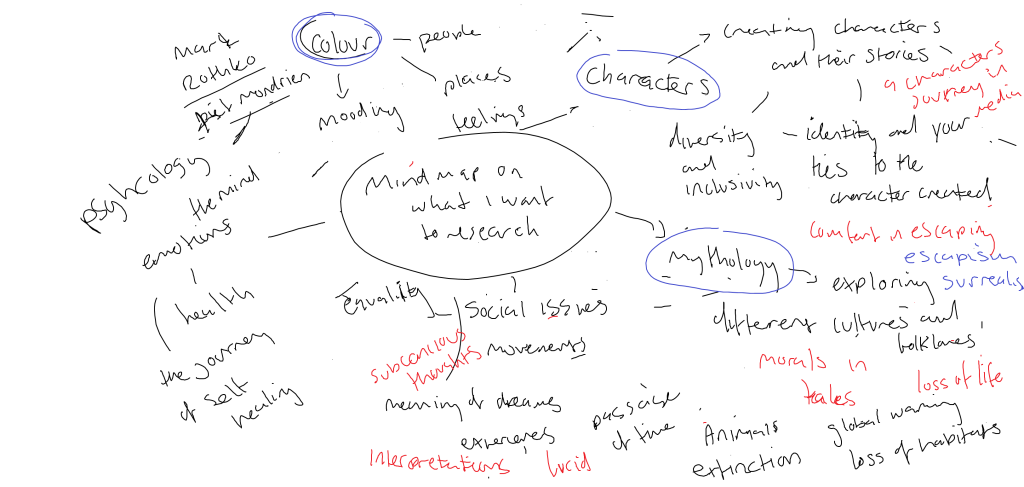 Mark
Rothko
piet mondrien
colour
people
places
feelings
mooding
psyhcology
the mind
emotions
health
the journey
of self
healing
Mind map on
what I want
to research
characters
creating characters
and their stories
a characters
journey in
media
diversity
and
inclusivity
identity and your
ties to the
character created
comfort in escaping
escapism
surrealis
mythology
exploring
different cultures and
folklores
morals in
tales
loss of life
global warning
loss of habitats
Animals
extinction
passage
of time
Equality
Social issues
movements
subconcious
thoughts
meaning of dreams
Interpretations, lucid